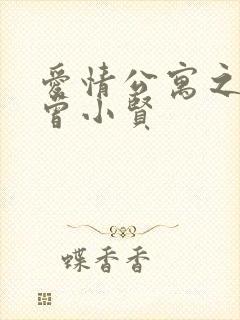 愛情公寓之
曾小賢
蝶香香